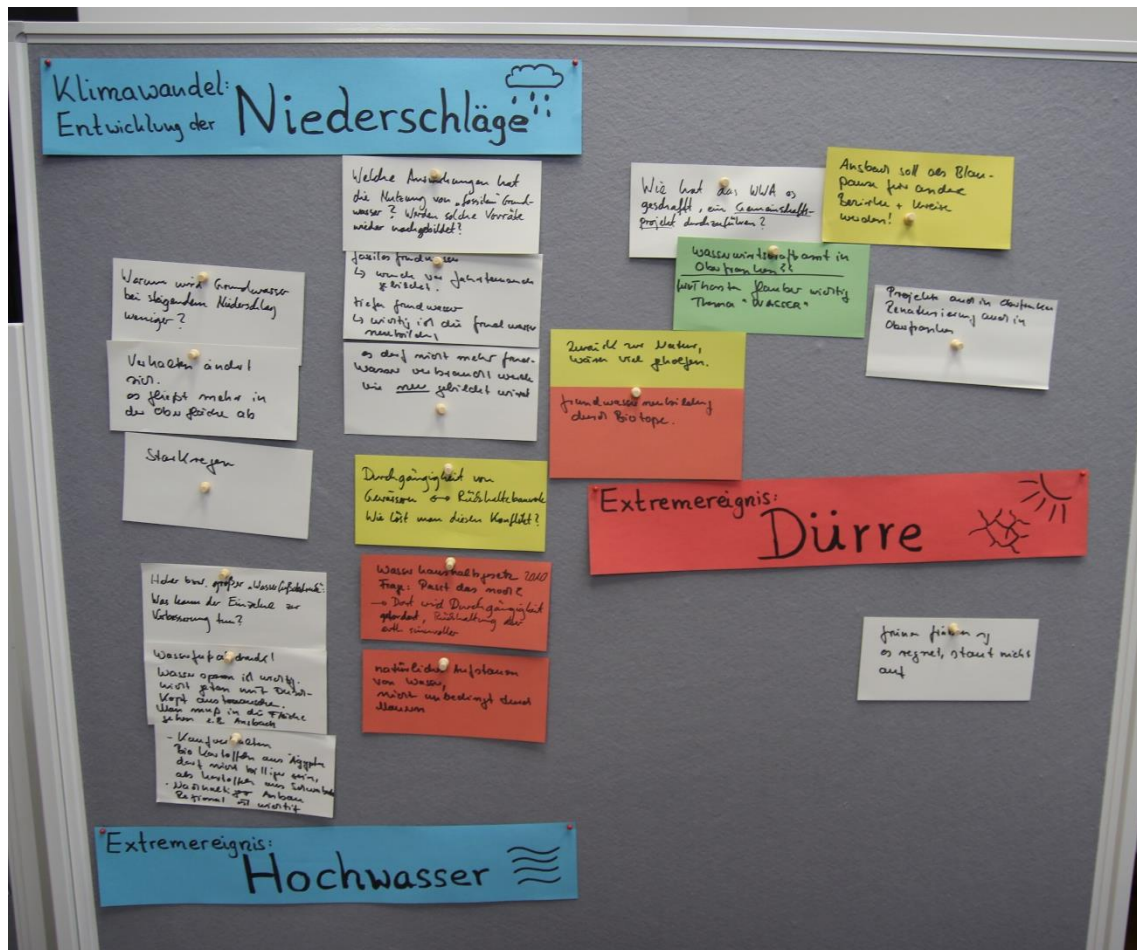 Klimawandel:
Entwicklung der Niederschläge
Welche Auswirkungen hat
die Nutzung von „fossilem" Grund-
wasser? Werden solche Vorräte
wieder nachgebildet?
fossiles Grundwasser
↳ wurde vor Jahrtausende
gebildet.
tiefen Grundwasser
↳ wichtig ist die Grundwasser
neubildung
es darf nicht mehr Grund-
wasser verbraucht werde
wie neu gebildet wird
Warum wird Grundwasser
bei steigendem Niederschlag
weniger?
Verhalten ändert
sich.
es fließt mehr in
der Oberfläche ab
Starkregen
Durchgängigkeit von
Gewässern ↔ Rückhaltebauwerke
Wie löst man diesen Konflikt?
Wasserhaushaltsgesetz 2010
Frage: Passt das noch?
→ Dort wird Durchgängigkeit
gefordert, Rückhaltung aber
evtl. sinnvoller
natürliches Aufstauen
von Wasser,
nicht unbedingt durch
Mauern
Hoher bzw. großer „Wasserfußabdruck":
Was kann der Einzelne zur
Verbesserung tun?
Wasserfußabdruck!
Wasser sparen ist wichtig.
nicht getan mit
Kopf austauschen.
Man muß in die Fläche
gehen z.B. Ansbach
- Kaufverhalten
Bio Kartoffeln aus Ägypten
darf nicht billiger sein,
als Kartoffeln aus
- Nachhaltiger Anbau
Regional ist wichtig
Wie hat das WWA es
geschafft, ein Gemeinschafts-
projekt durchzuführen?
Ansbach soll als Blau-
pause für andere
Bezirke + Kreise
werden!
Wasserwirtschaftsamt in
Oberfranken??
Thorsten Glauber wichtig
Thema "WASSER"
Projekte auch in Oberfranken
Renaturierung auch in
Oberfranken
Zurück zur Natur,
wäre viel geholfen.
Grundwasserneubildung
durch Biotope.
Extremereignis:
Dürre
es regnet, staut nicht
auf
Extremereignis:
Hochwasser